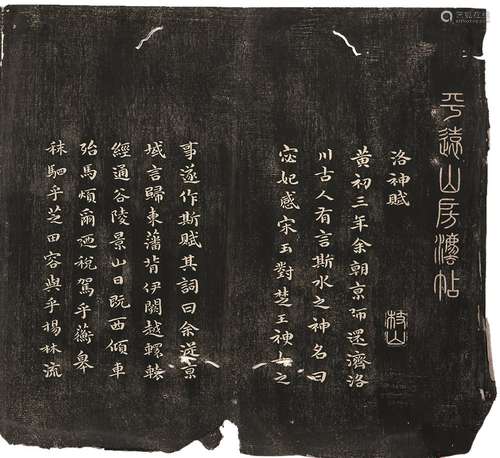 平遠山房灋帖
洛神賦
枝山
黃初三年余朝京師還濟洛
川古人有言斯水之神名曰
宓妃感宋玉對楚王神女之
事遂作斯賦其詞曰余從京
域言歸東藩背伊闕越轘轅
經通谷陵景山日既西傾車
殆馬煩爾迺稅駕乎蘅皋
秣駟乎芝田容與乎楊林流